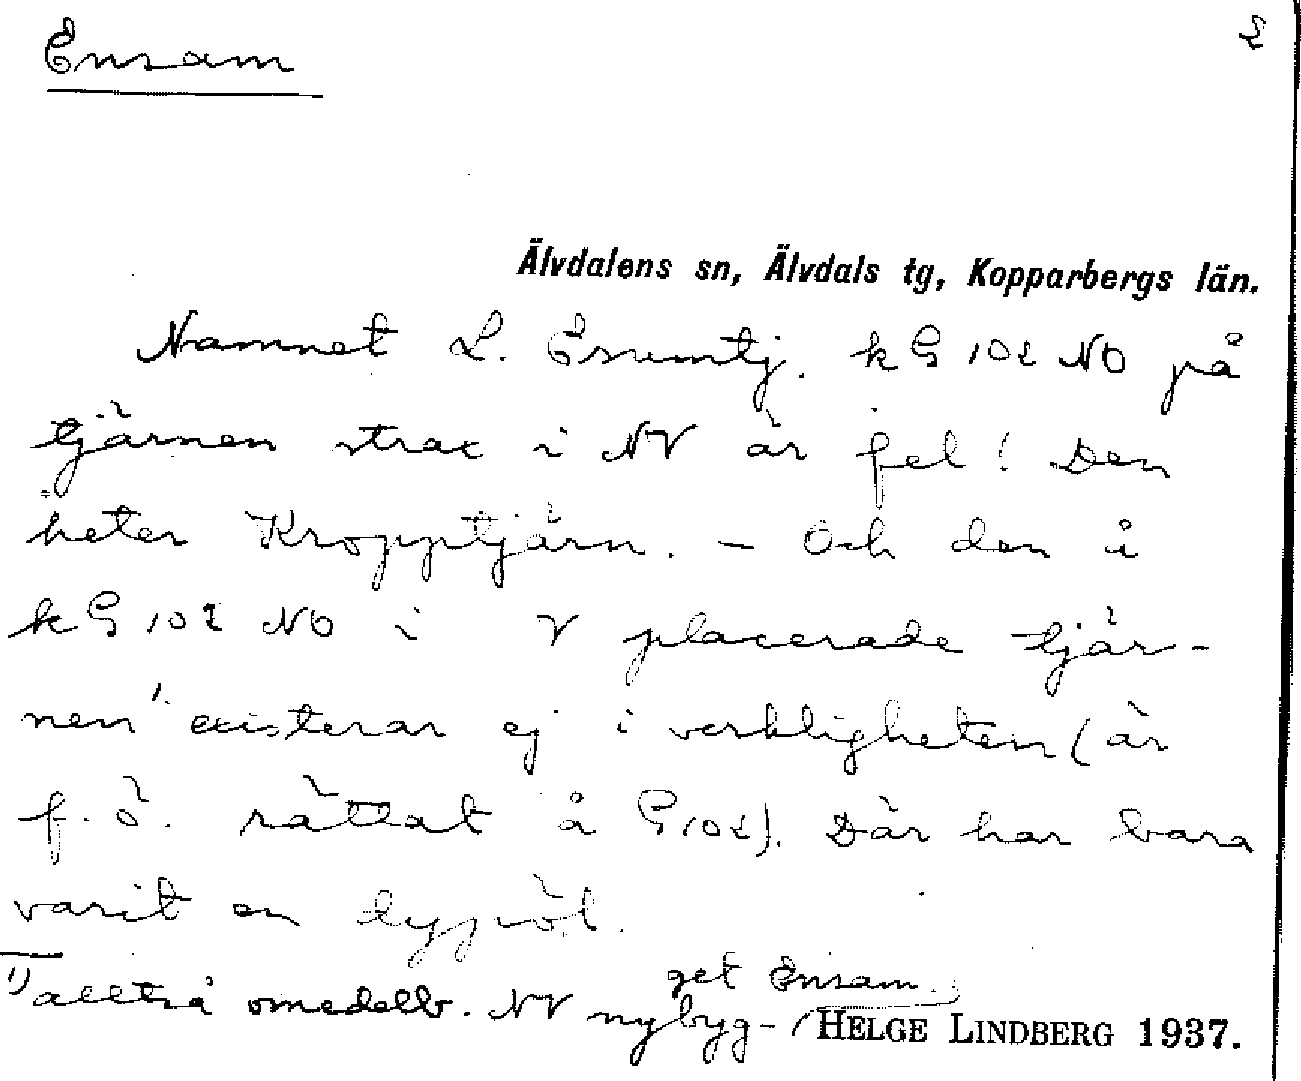 Ensam
2
Älvdalens sn, Älvdals tg, Kopparbergs län.
Namnet L. Ensamtj. k G 102 NO på
tjärnen strax i NV är fel! Den
heter Kropptjärn. – Och den å
k G 102 NO i V placerade tjär-
nen¹⁾ existerar ej i verkligheten (är
f. ö. rättat å G 102). Där har bara
varit en
¹⁾ alltså omedelb. NV nybyg-
get Ensam.
HELGE LINDBERG 1937.